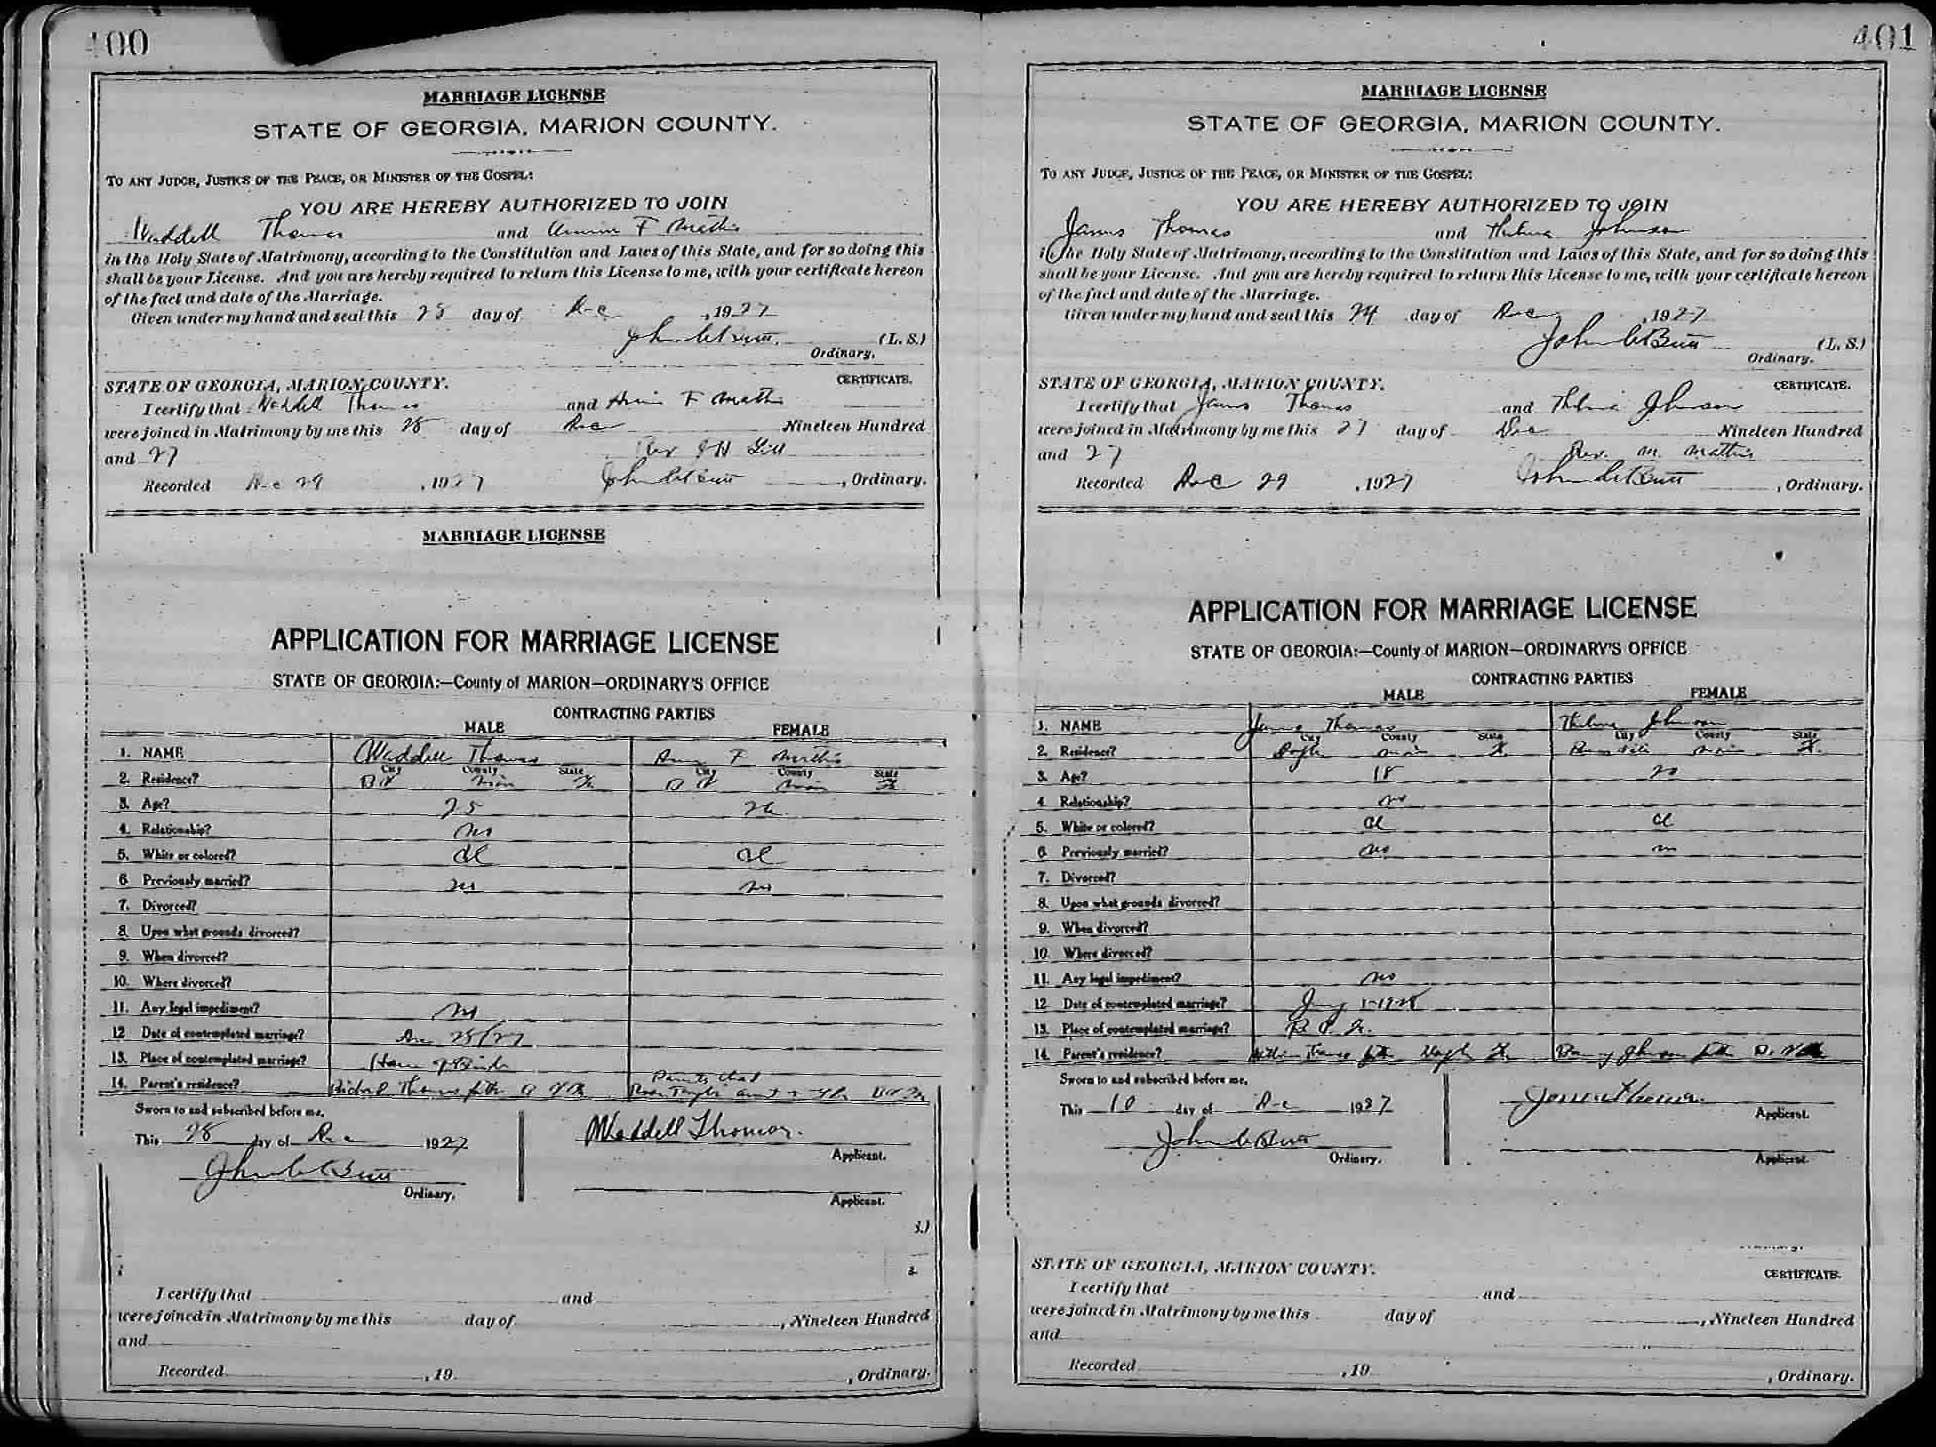 400
MARRIAGE LICENSE
STATE OF GEORGIA, MARION COUNTY.
TO ANY JUDGE, JUSTICE OF THE PEACE, OR MINISTER OF THE GOSPEL:
YOU ARE HEREBY AUTHORIZED TO JOIN
Waddell Thomas and F Mathis
in the Holy State of Matrimony, according to the Constitution and Laws of this State, and for so doing this
shall be your License. And you are hereby required to return this License to me, with your certificate hereon
of the fact and date of the Marriage.
Given under my hand and seal this 28 day of Dec , 1927
John C Butt (L. S.)
Ordinary.
STATE OF GEORGIA, MARION COUNTY. CERTIFICATE.
I certify that Waddell Thomas and F Mathis
were joined in Matrimony by me this 28 day of Dec Nineteen Hundred
and 27 Rev
Recorded Dec 29 , 1927 John C Butt , Ordinary.
MARRIAGE LICENSE
APPLICATION FOR MARRIAGE LICENSE
STATE OF GEORGIA:—County of MARION—ORDINARY'S OFFICE
CONTRACTING PARTIES
MALE FEMALE
1. NAME Waddell Thomas F Mathis
City County State City County State
2. Residence?
3. Age? 25 26
4. Relationship? no
5. White or colored? Cl Cl
6. Previously married? no no
7. Divorced?
8. Upon what grounds divorced?
9. When divorced?
10. Where divorced?
11. Any legal impediment? no
12. Date of contemplated marriage? Dec 28/27
13. Place of contemplated marriage? Home of Bride
14. Parent's residence? Thomas father
Sworn to and subscribed before me,
This 28 day of Dec 1927 Waddell Thomas.
Applicant.
John C Butt
Ordinary.
Applicant.
I certify that and
were joined in Matrimony by me this day of , Nineteen Hundred
and
Recorded , 19 , Ordinary.
401
MARRIAGE LICENSE
STATE OF GEORGIA, MARION COUNTY.
TO ANY JUDGE, JUSTICE OF THE PEACE, OR MINISTER OF THE GOSPEL:
YOU ARE HEREBY AUTHORIZED TO JOIN
James Thomas and Thelma Johnson
in the Holy State of Matrimony, according to the Constitution and Laws of this State, and for so doing this
shall be your License. And you are hereby required to return this License to me, with your certificate hereon
of the fact and date of the Marriage.
Given under my hand and seal this 24 day of Dec , 1927
John C Butt (L. S.)
Ordinary.
STATE OF GEORGIA, MARION COUNTY. CERTIFICATE.
I certify that James Thomas and Thelma Johnson
were joined in Matrimony by me this 27 day of Dec Nineteen Hundred
and 27 Rev. M. Mathis
Recorded Dec 29 , 1927 John C Butt , Ordinary.
APPLICATION FOR MARRIAGE LICENSE
STATE OF GEORGIA:—County of MARION—ORDINARY'S OFFICE
CONTRACTING PARTIES
MALE FEMALE
1. NAME James Thomas Thelma Johnson
City County State City County State
2. Residence?
3. Age? 18 20
4. Relationship? no
5. White or colored? Cl Cl
6. Previously married? no no
7. Divorced?
8. Upon what grounds divorced?
9. When divorced?
10. Where divorced?
11. Any legal impediment? no
12. Date of contemplated marriage?
13. Place of contemplated marriage?
14. Parent's residence? Thomas father Johnson father
Sworn to and subscribed before me,
This 10 day of Dec 1927
Applicant.
John C Butt
Ordinary. Applicant.
STATE OF GEORGIA, MARION COUNTY. CERTIFICATE.
I certify that and
were joined in Matrimony by me this day of , Nineteen Hundred
and
Recorded , 19 , Ordinary.